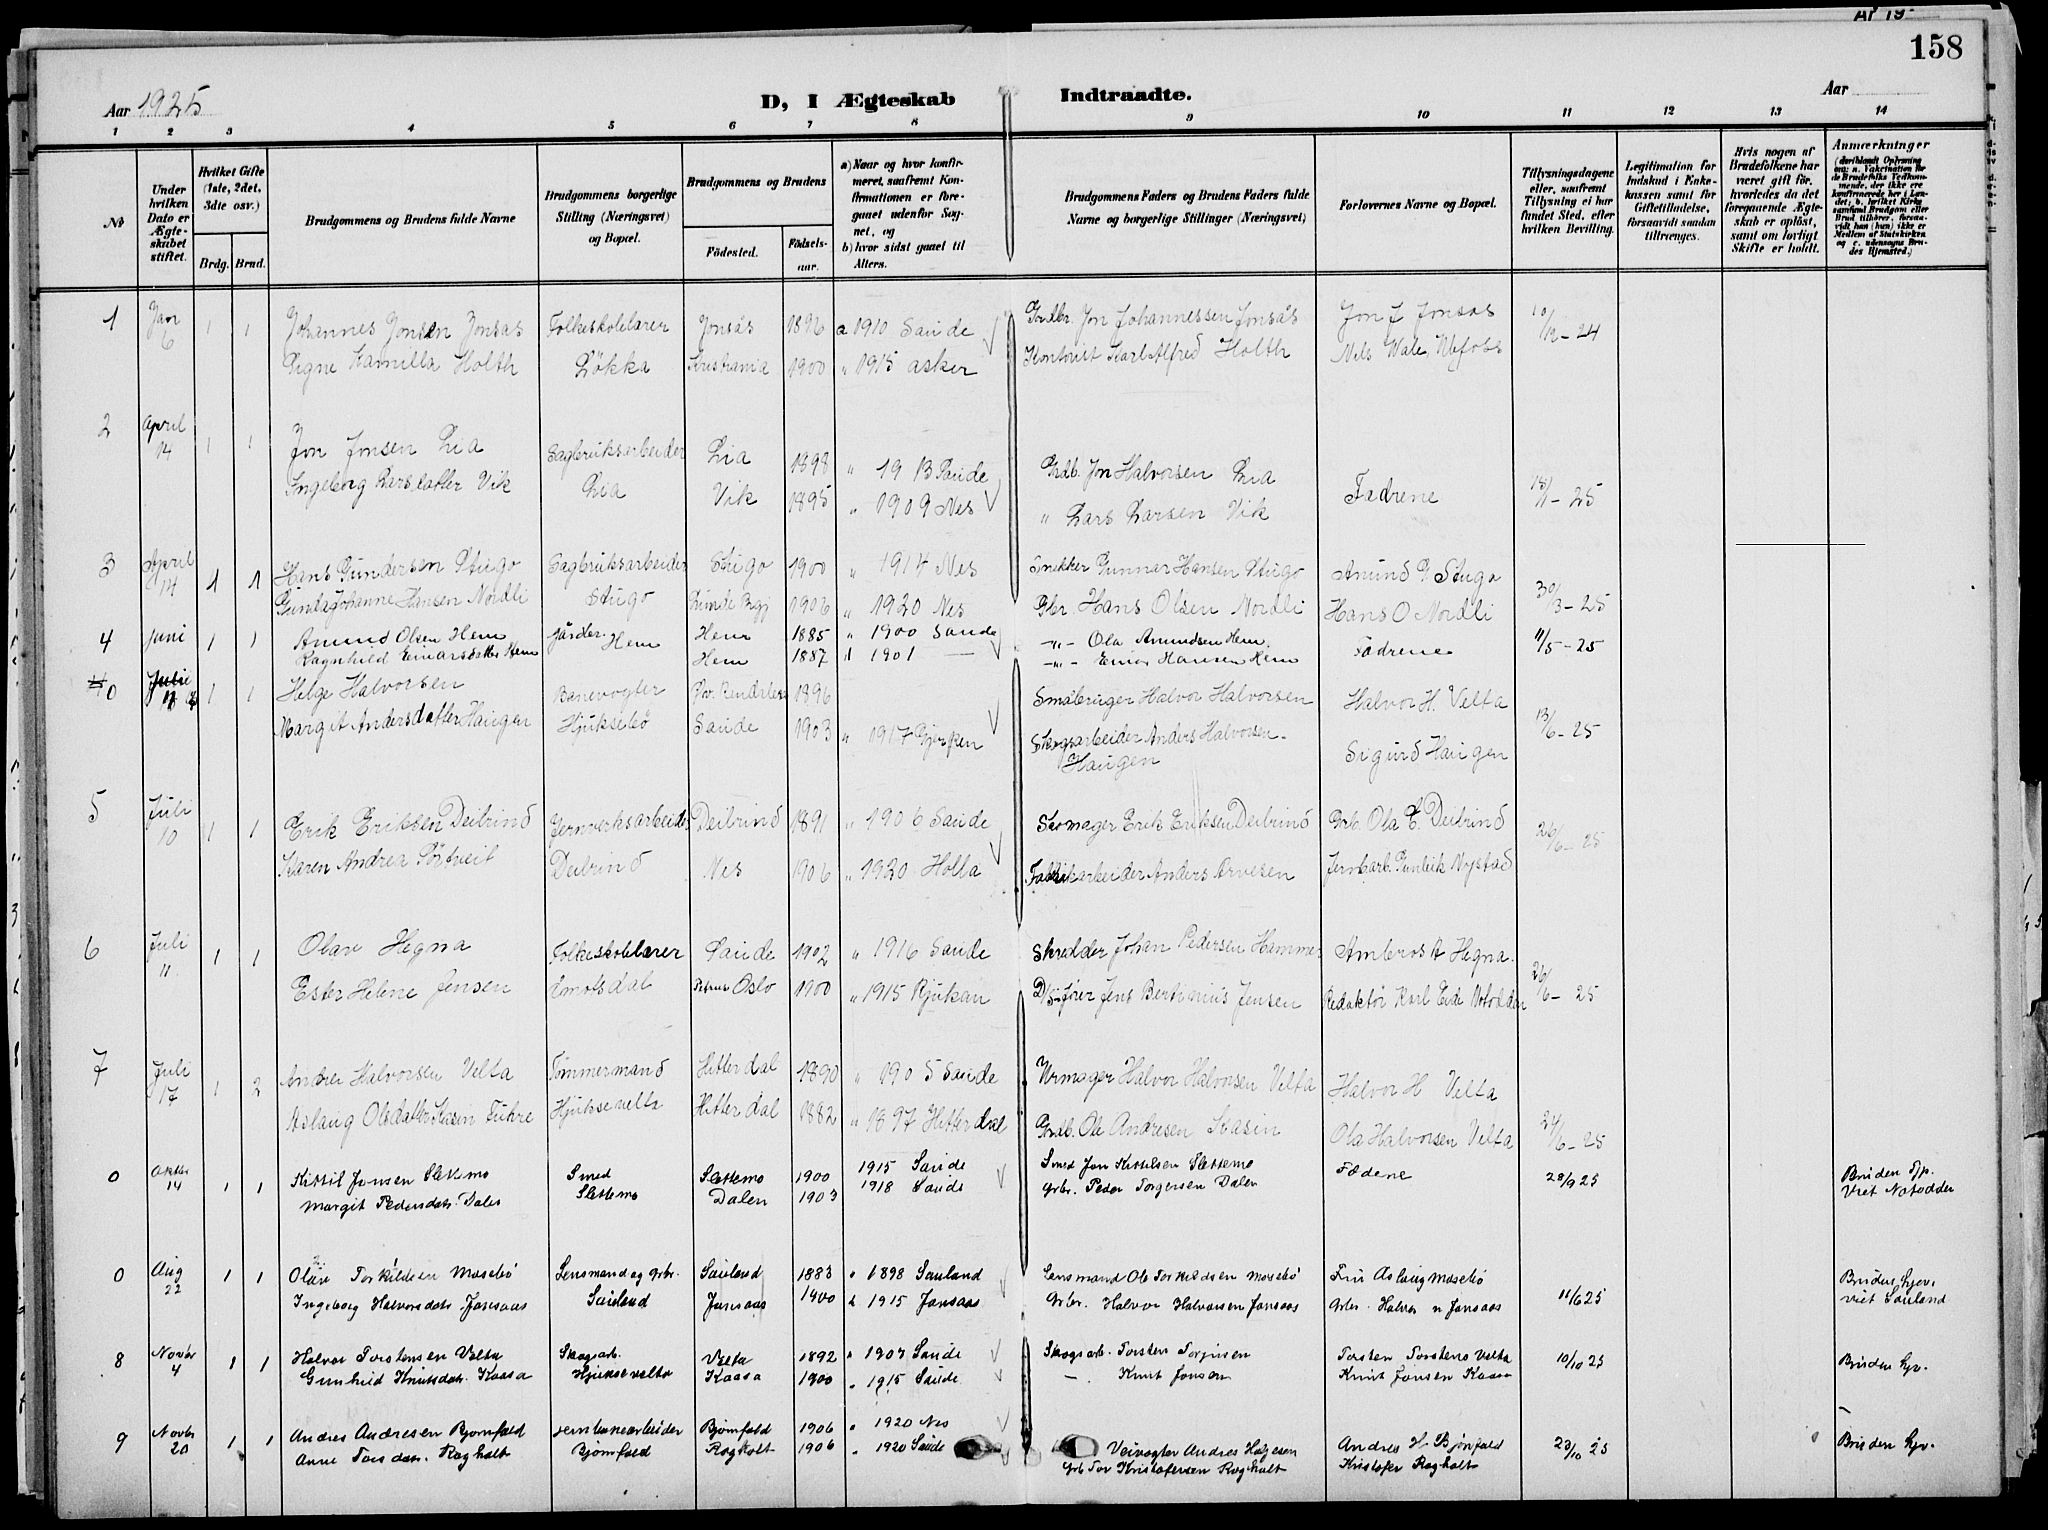 Ar 19
158
Aar 1925
D, I Ægteskab Indtraadte.
Aar
1 2 3 4 5 6 7 8 9 10 11 12 13 14
No
Under hvilken Dato er Ægteskabet stiftet.
Hvilket Gifte (1ste, 2det, 3die osv.)
Brdg. Brud.
Brudgommens og Brudens fulde Navne
Brudgommens borgerlige Stilling (Næringsvei) og Bopæl.
Brudgommens og Brudens
Fødested. Fødselsaar.
a) Naar og hvor konfirmeret, saafremt Konfirmationen er foregaaet udenfor Sognet, og
b) hvor sidst gaaet til Alters.
Brudgommens Faders og Brudens Faders fulde Navne og borgerlige Stillinger (Næringsvei)
Forlovernes Navne og Bopæl.
Tillysningsdagene eller, saafremt Tillysning ei har fundet Sted, efter hvilken Bevilling.
Legitimation for Indskud i Enkekassen samt for Giftetilladelse, forsaavidt saadan tiltrænges.
Hvis nogen af Brudefolkene har været gift før, hvorledes da det foregaaende Ægteskab er opløst, samt om lovligt Skifte er holdt.
Anmærkninger
1 Jan 6 1 1 Johannes Jonsen Jonsås Folkeskolelærer Jonsås 1896 a 1910 Saude Grdbr. Jon Johannessen Jonsås Jon J Jonsås 10/12 - 24
Signe Kamilla Holth Løkka Kristiania 1900 " 1915 Asker Kontorist Karl Alfred Holth Nils
2 April 14 1 1 Jon Jonsen Lia Sagbruksarbeider Lia 1898 " 1913 Saude Grdb. Jon Halvorsen Lia Fædrene 18/1 - 25
Ingeborg Larsdatter Vik Lia Vik 1895 " 1909 Nes " Lars Larsen Vik
3 April 14 1 1 Hans Gundersen Stugo Sagbruksarbeider Stugo 1900 " 1914 Nes Snekker Gunnar Hansen Stugo Amund G Stugo 30/3 - 25
Gunda Johanne Hansen Nordli Stugo Lunde 1906 " 1920 Nes Gbr. Hans Olsen Nordli Hans O Nordli
4 Juni 1 1 Amund Olsen Hem Gårdbr. Hem Hem 1885 " 1900 Saude -"- Ola Amundsen Hem Fædrene 11/5 - 25
Ragnhild Einarsdatter Hem Hem 1887 " 1901 — -"- Einar Hansen Hem
0 Juli 1 1 Helge Halvorsen Banevogter 1896 Småbruger Halvor Halvorsen Halvor H. Velta 13/6 - 25
Margit Andersdatter Haugen Hjuksebø Saude 1903 " 1917 Gjerpen Skogsarbeider Anders Halvorsen - Haugen Sigurd Haugen
5 Juli 10 1 1 Erik Eriksen Deilrind Jernverksarbeider Deilrind 1891 " 1906 Saude Skomager Erik Eriksen Deilrind Grb. Ola E. Deilrind 26/6 - 25
Karen Andrea Sørtveit Deilrind Nes 1906 " 1920 Holla Fabrikarbeider Anders Arvesen Jernbarb. Gunleik Nystad
6 Juli 11 1 1 Olav Hegna Folkeskolelærer Saude 1902 " 1916 Saude Skredder Johan Pedersen Hammer Ambros A Hegna. 26/6 - 25
Ester Helene Jensen Åmotsdal Oslo 1900 " 1915 Rjukan Jens Bertinius Jensen Redaktør Karl Eide Notodden
7 Juli 17 1 2 Andres Halvorsen Velta Tømmermand Hitterdal 1890 " 1905 Saude Urmager Halvor Halvorsen Velta Halvor H Velta 24/6 - 25
Aslaug Olsdatter Kasin Fuhre Hjuksevelta Hitterdal 1882 " 1897 Hitterdal Grdb. Ole Andresen Kasin Ola Halvorsen Velta
0 Oktbr 14 1 1 Kittil Jonsen Slettemo Smed Slettemo 1900 1915 Saude Smed Jon Kittelsen Slettemo Fædrene 28/9 25 Bruden
Margit Pedersdatr. Dalen Slettemo Dalen 1903 1918 Saude Grbr. Peder Torgersen Dalen Viet Notodden
0 Aug 22 1 1 Olav Torkildsen Mosebø Lensmand og Grbr. Sauland 1883 " 1898 Sauland Lensmand Ole Torkildsen Mosebø Fru Aslaug Mosebø 11/6 25 Bruden hjv.
Ingeborg Halvorsdatr. Jonsaas Sauland Jonsaas 1900 " 1915 Jonsaas Grbr. Halvor Halvorsen Jonsaas Grbr. Halvor Jonsaas viet Sauland
8 Novbr 4 1 1 Halvor Torstensen Velta Skogsarb. Velta 1892 " 1907 Saude Skogsarb. Torsten Torjusen Torsten Torstens Velta 10/10 25 Bruden hjv.
Gunhild Knutsdatr. Kaasa Hjuksevelta Kaasa 1900 " 1915 Saude — Knut Jonsen Knut Jonsen Kaasa
9 Novbr 20 1 1 Andres Andresen Bjørnfald Jernbanearbeider Bjørnfald 1906 " 1920 Nes Veivogter Andres Helgesen Andres H. Bjønfald 23/10 25 Bruden hjv.
Anne Torsdatr. Rogholt Bjørnfald Rogholt 1906 " 1920 Saude Grb Tor Kristofersen Rogholt Kristofer Rogholt